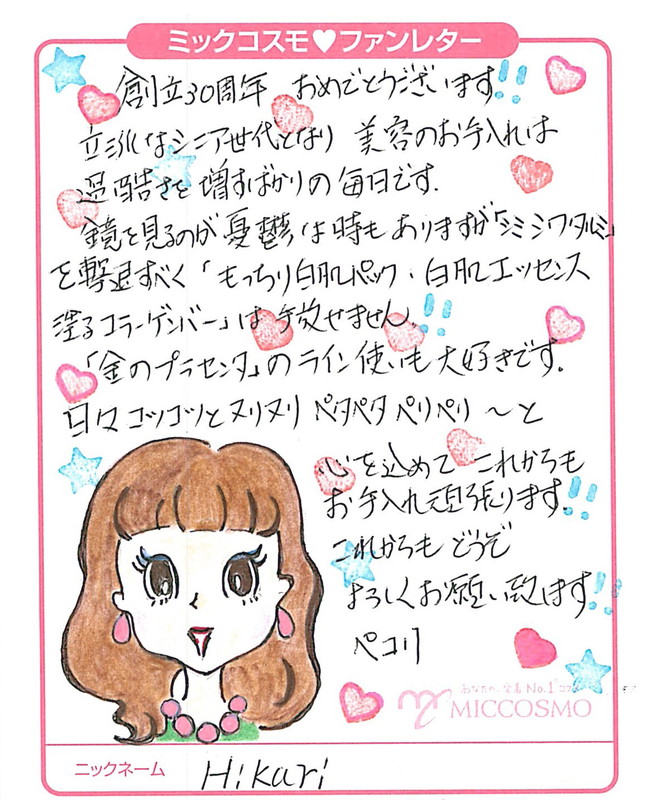 ミックコスモ♥ファンレター
創立30周年 おめでとうございます!!
立派なシニア世代となり 美容のお手入れは
過酷さを増すばかりの毎日です.
鏡を見るのが憂鬱な時もありますが「シミシワタルミ」
を撃退すべく「もっちり白肌パック、白肌エッセンス
塗るコラーゲンバー」は手放せません!!
「金のプラセンタ」のライン使いも大好きです.
日々コツコツとヌリヌリ ペタペタ ペリペリ 〜と
心を込めて これからも
お手入れ頑張ります!!
これからも どうぞ
よろしくお願い致します!!
ペコリ
No.1
MICCOSMO
ニックネーム Hikari